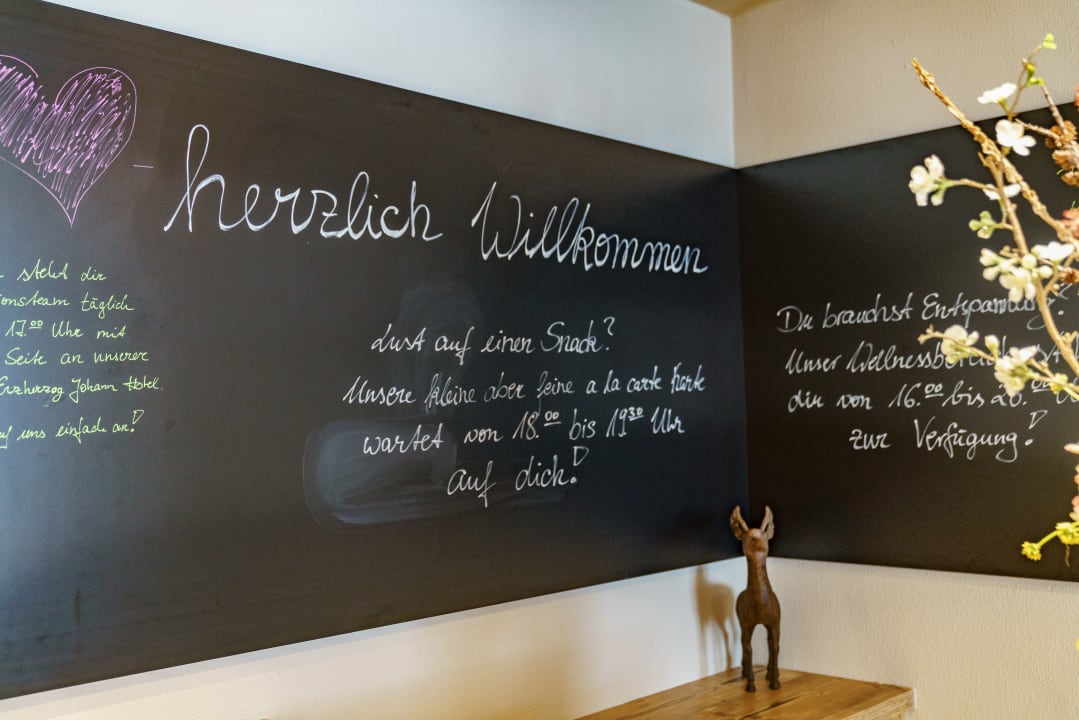 herzlich Willkommen
steht dir
täglich
17.00 Uhr mit
Seite an unserer
Erzherzog Johann Hotel.
uns einfach an!
Lust auf einen Snack?
Unsere kleine aber feine a la carte Karte
wartet von 18.00 bis 19.30 Uhr
auf dich!
Du brauchst Entspannung?
Unser Wellnessbereich
dir von 16.00 bis 20.
zur Verfügung!